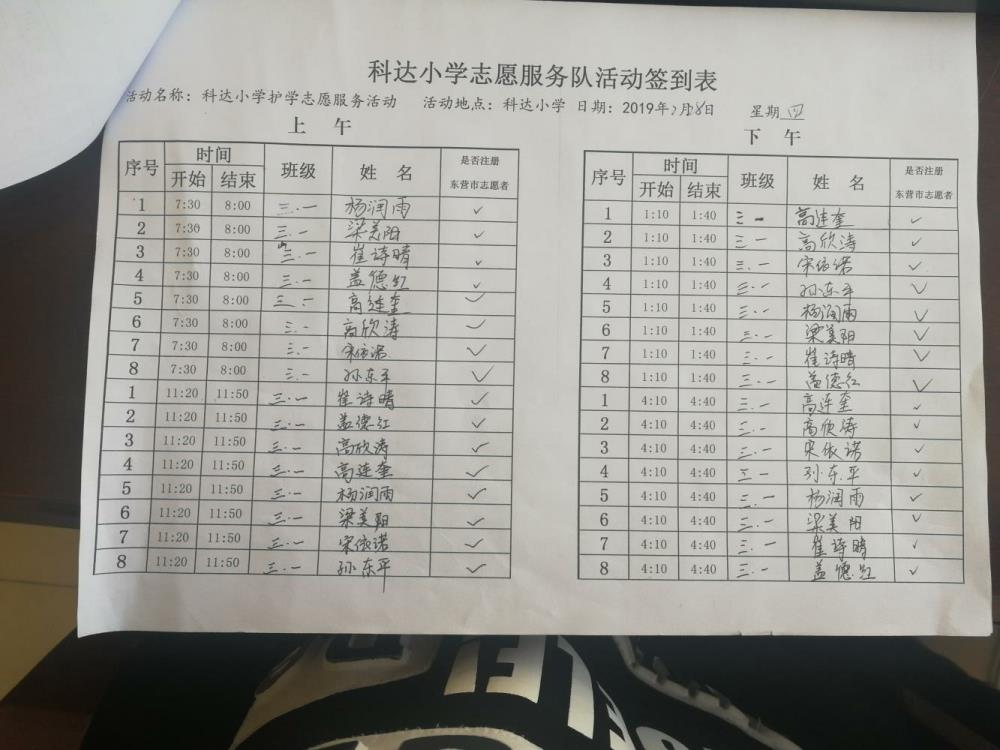 科达小学志愿服务队活动签到表
活动名称：科达小学护学志愿服务活动 活动地点：科达小学 日期：2019年2月28日 星期四
上 午
序号 时间 班级 姓 名 是否注册
开始 结束 东营市志愿者
1 7:30 8:00 三.一 杨润雨 ✓
2 7:30 8:00 三.一 梁美阳 ✓
3 7:30 8:00 三.一 崔诗晴 ✓
4 7:30 8:00 三.一 盖德红 ✓
5 7:30 8:00 三.一 高连奎 ✓
6 7:30 8:00 三.一 高欣涛 ✓
7 7:30 8:00 三.一 宋依诺 ✓
8 7:30 8:00 三.一 孙东平 ✓
1 11:20 11:50 三.一 崔诗晴 ✓
2 11:20 11:50 三.一 盖德红 ✓
3 11:20 11:50 三.一 高欣涛 ✓
4 11:20 11:50 三.一 高连奎 ✓
5 11:20 11:50 三.一 杨润雨 ✓
6 11:20 11:50 三.一 梁美阳 ✓
7 11:20 11:50 三.一 宋依诺 ✓
8 11:20 11:50 三.一 孙东平 ✓
下 午
序号 时间 班级 姓 名 是否注册
开始 结束 东营市志愿者
1 1:10 1:40 三一 高连奎 ✓
2 1:10 1:40 三一 高欣涛 ✓
3 1:10 1:40 三.一 宋依诺 ✓
4 1:10 1:40 三.一 孙东平 ✓
5 1:10 1:40 三.一 杨润雨 ✓
6 1:10 1:40 三.一 梁美阳 ✓
7 1:10 1:40 三.一 崔诗晴 ✓
8 1:10 1:40 三.一 盖德红 ✓
1 4:10 4:40 三.一 高连奎 ✓
2 4:10 4:40 三.一 高欣涛 ✓
3 4:10 4:40 三.一 宋依诺 ✓
4 4:10 4:40 三一 孙东平 ✓
5 4:10 4:40 三.一 杨润雨 ✓
6 4:10 4:40 三.一 梁美阳 ✓
7 4:10 4:40 三.一 崔诗晴 ✓
8 4:10 4:40 三.一 盖德红 ✓